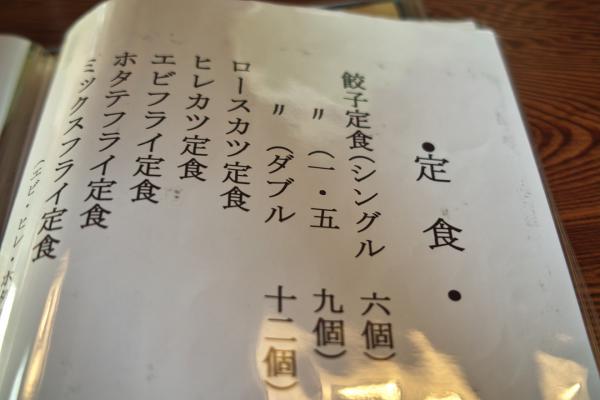 ・定食・
餃子定食(シングル 六個)
〃 (一・五 九個)
〃 (ダブル 十二個)
ロースカツ定食
ヒレカツ定食
エビフライ定食
ホタテフライ定食
ミックスフライ定食
(エビ・ヒレ・ホ